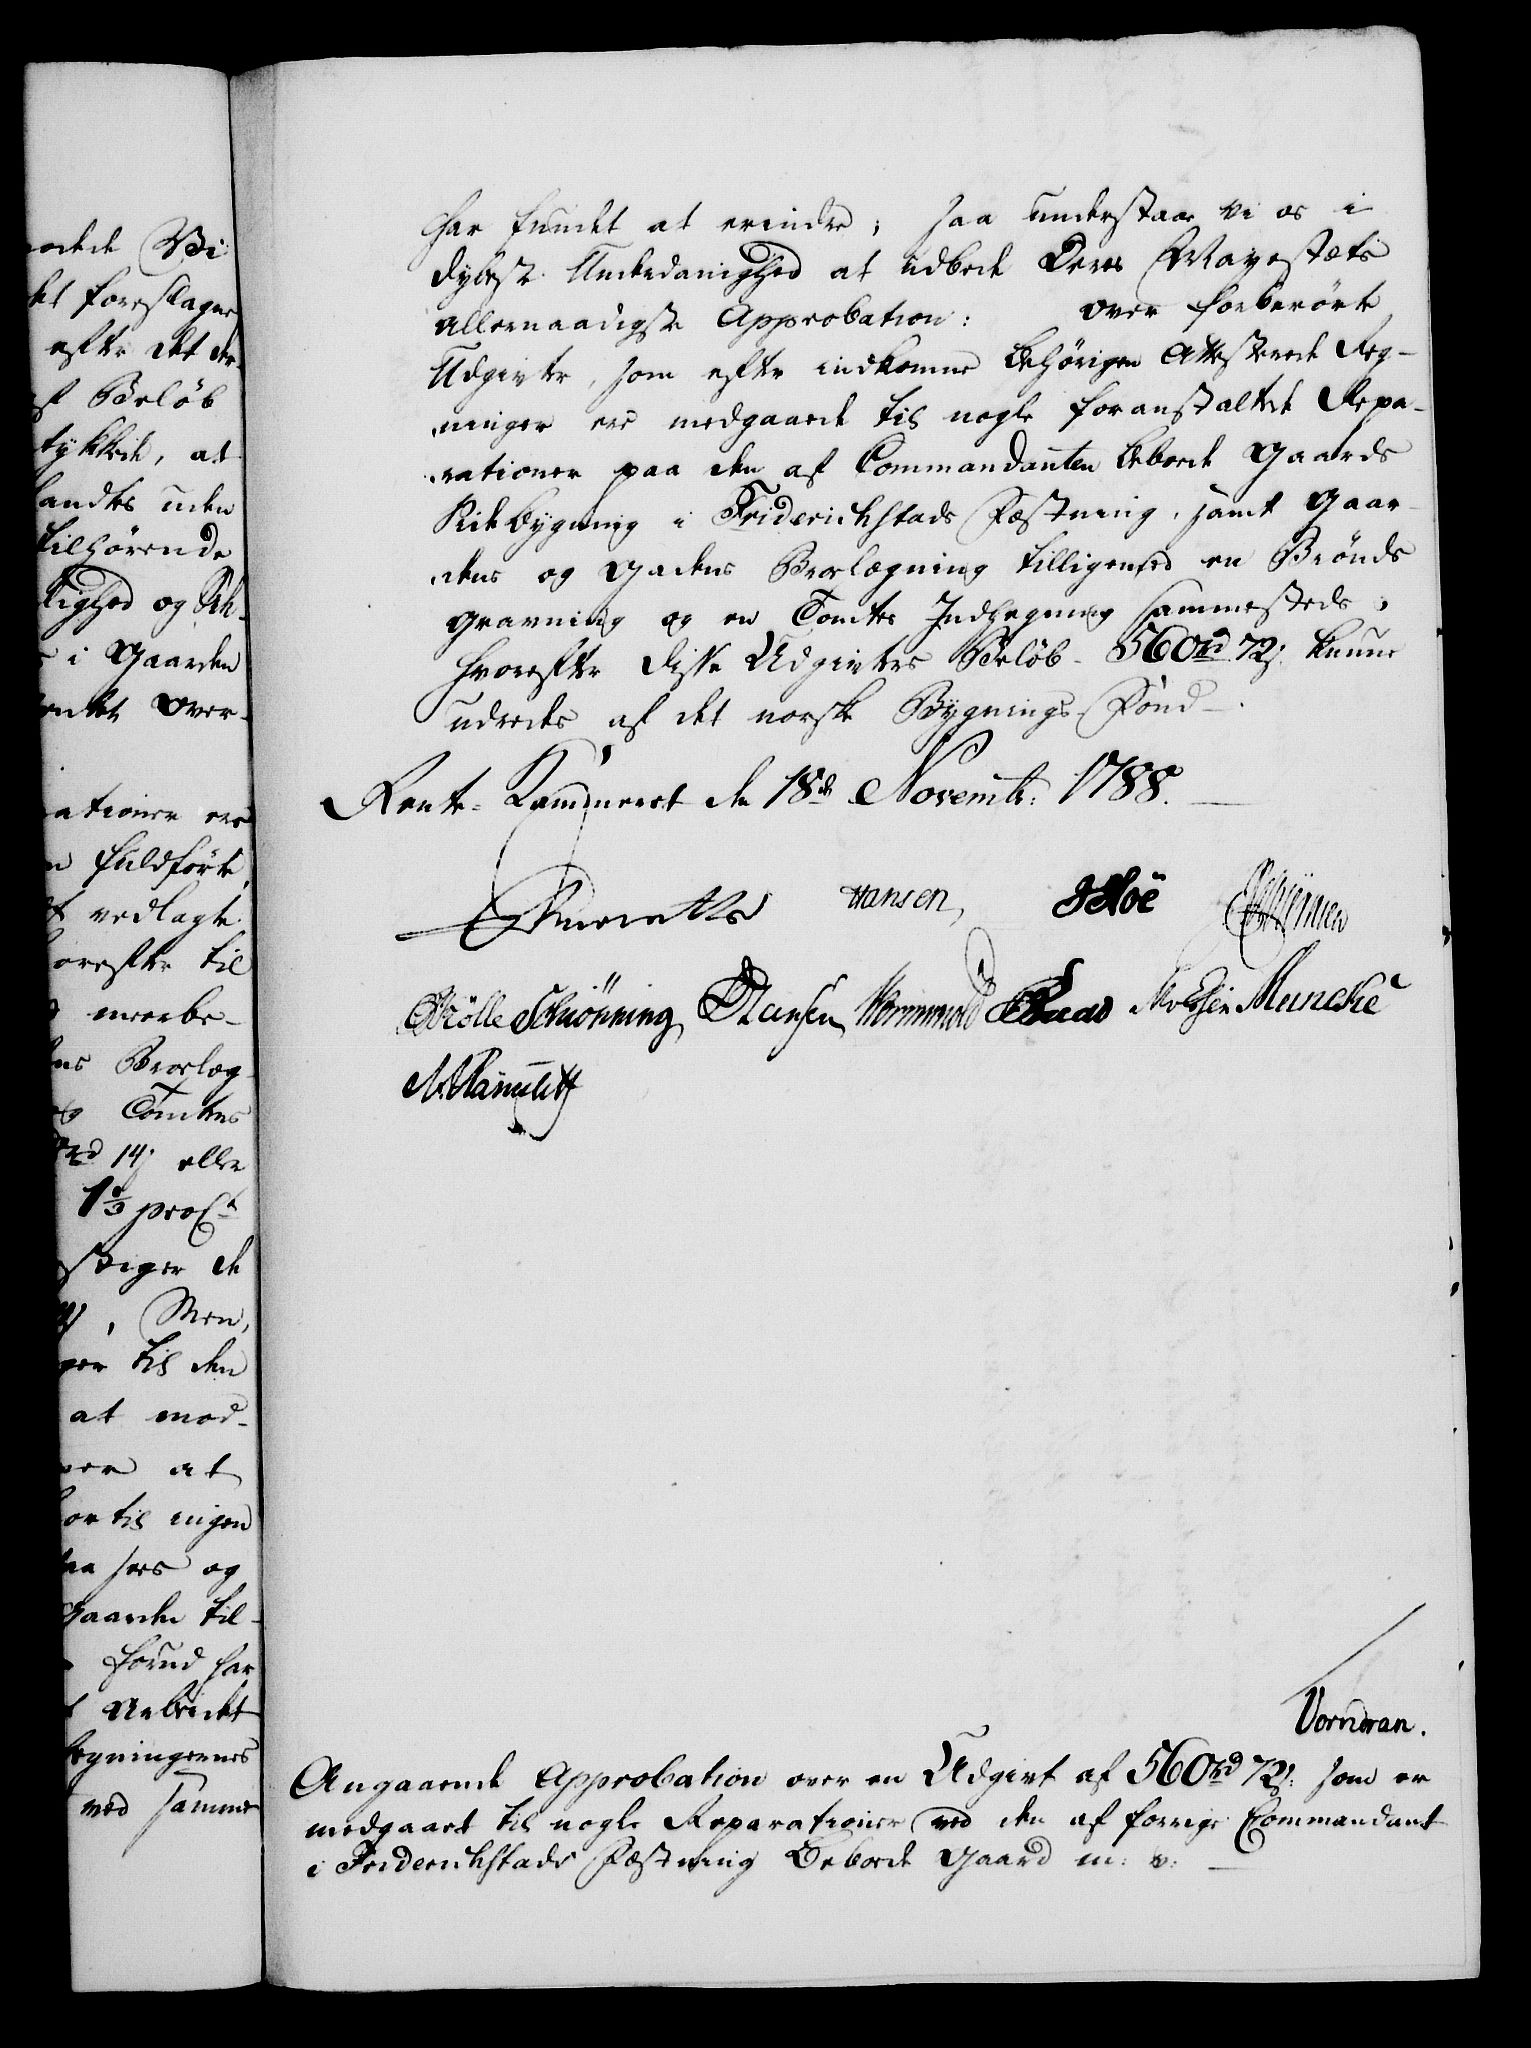 har fundet at erindre; saa understaae vi os i
dybest Underdanighed at udbede Deres Mayestæts
allernaadigste Approbation: over forberørte
Udgivter, som efter indkomne behørigen attesterede Reg-
ninger ere medgaaede til nogle foranstaltede Repa-
rationer paa den af Commandanten beboede Gaards
Sidebygning i Friderichstads Fæstning, samt Gaar-
dens og Gadens Broelægning tilligemed en Brønds
Gravning og en Tomtes Indhegning sammesteds;
hvorefter disse Udgivters Beløb 560 rd 72 s. kunne
udredes af det norske Bygnings-Fond.
Rente-Kammeret den 18de Novembr: 1788.
Hansen
JHoë
Schiönning Hansen Wormwold Meincke
Vorndran.
Angaaende Approbation over en Udgivt af 560 rd 72 s: som er
medgaaet til nogle Reparationer ved den af forrige Commandant
i Friderichstads Fæstning beboede Gaard m: v:
det foreslagne
efter det der-
af Beløb
tykkede, at
uden
tilhørende
og
i Gaarden
Over-
ere
fuldførte
vedlagte
til
meerbe-
Broelæg-
og Tomtens
rd 14 s eller
1 2/3 proCt
stiger de
Men,
til den
at mod-
at
ingen
og
Gaarden til-
forud har
Arbeidet
bygningernes
ved samme